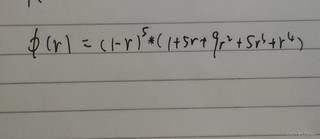 ϕ(r) = (1-r)⁵*(1+5r+9r²+5r³+r⁴)